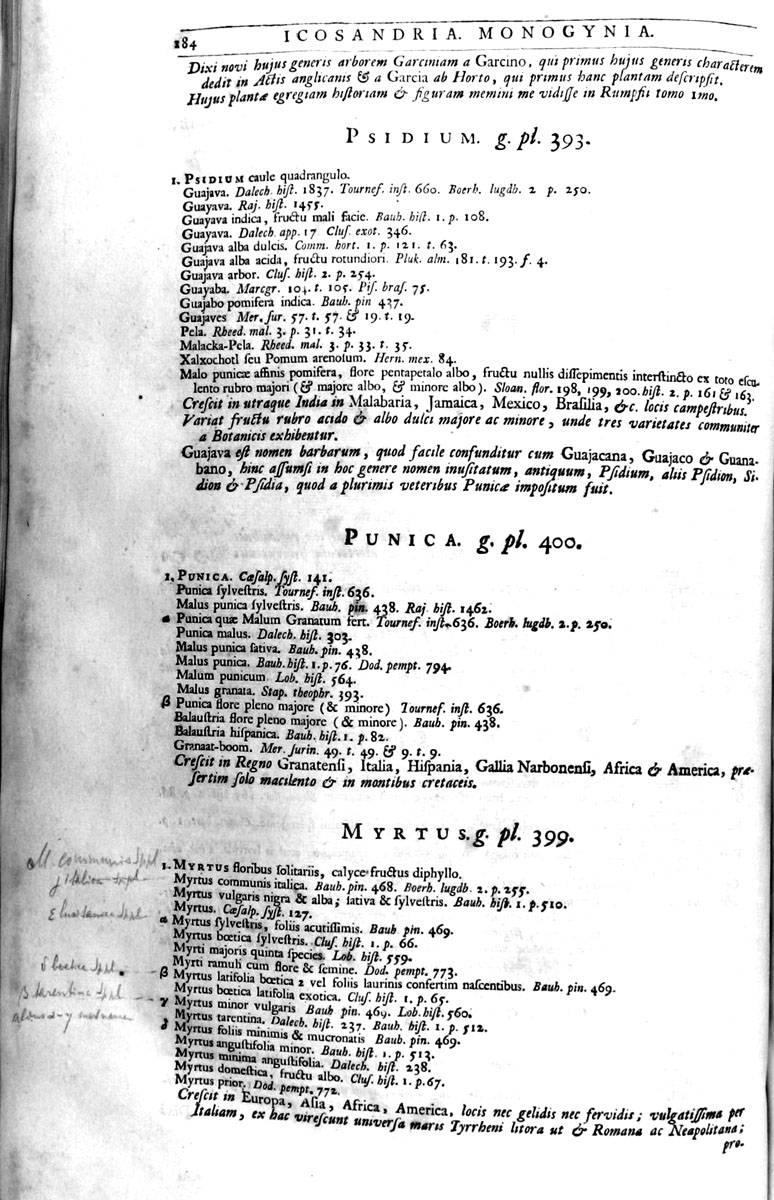 184
ICOSANDRIA. MONOGYNIA.
Dixi novi hujus generis arborem Garciniam a Garcino, qui primus hujus generis characterem
dedit in Actis anglicanis & a Garcia ab Horto, qui primus hanc plantam descripsit.
Hujus plantæ egregiam historiam & figuram memini me vidisse in Rumpfii tomo 1mo.
PSIDIUM. g. pl. 393.
1. PSIDIUM caule quadrangulo.
Guajava. Dalech. hist. 1837. Tournef. inst. 660. Boerh. lugdb. 2 p. 250.
Guayava. Raj. hist. 1455.
Guayava indica, fructu mali facie. Bauh. hist. 1. p. 108.
Guayava. Dalech. app. 17 Clus. exot. 346.
Guajava alba dulcis. Comm. hort. 1. p. 121. t. 63.
Guajava alba acida, fructu rotundiori. Pluk. alm. 181. t. 193. f. 4.
Guajava arbor. Clus. hist. 2. p. 254.
Guayaba. Marcgr. 104. t. 105. Pis. bras. 75.
Guajabo pomifera indica. Bauh. pin 437.
Guajaves Mer. sur. 57. t. 57. & 19. t. 19.
Pela. Rheed. mal. 3. p. 31. t. 34.
Malacka-Pela. Rheed. mal. 3. p. 33. t. 35.
Xalxochotl seu Pomum arenosum. Hern. mex. 84.
Malo punicæ affinis pomifera, flore pentapetalo albo, fructu nullis dissepimentis interstincto ex toto escu-
lento rubro majori (& majore albo, & minore albo). Sloan. flor. 198, 199, 200. hist. 2. p. 161 & 163.
Crescit in utraque India in Malabaria, Jamaica, Mexico, Brasilia, &c. locis campestribus.
Variat fructu rubro acido & albo dulci majore ac minore, unde tres varietates communiter
a Botanicis exhibentur.
Guajava est nomen barbarum, quod facile confunditur cum Guajacana, Guajaco & Guana-
bano, hinc assumsi in hoc genere nomen inusitatum, antiquum, Psidium, aliis Psidion, Si-
dion & Psidia, quod a plurimis veteribus Punicæ impositum fuit.
PUNICA. g. pl. 400.
1. PUNICA. Cæsalp. syst. 141.
Punica sylvestris. Tournef. inst. 636.
Malus punica sylvestris. Bauh. pin. 438. Raj. hist. 1462.
α Punica quæ Malum Granatum fert. Tournef. inst. 636. Boerh. lugdb. 2. p. 250.
Punica malus. Dalech. hist. 303.
Malus punica sativa. Bauh. pin. 438.
Malus punica. Bauh. hist. 1. p. 76. Dod. pempt. 794.
Malum punicum Lob. hist. 564.
Malus granata. Stap. theophr. 393.
β Punica flore pleno majore (& minore) Tournef. inst. 636.
Balaustria flore pleno majore (& minore). Bauh. pin. 438.
Balaustria hispanica. Bauh. hist. 1. p. 82.
Granaat-boom. Mer. surin. 49. t. 49. & 9. t. 9.
Crescit in Regno Granatensi, Italia, Hispania, Gallia Narbonensi, Africa & America, præ-
sertim solo macilento & in montibus cretaceis.
MYRTUS. g. pl. 399.
1. MYRTUS floribus solitariis, calyce fructus diphyllo.
Myrtus communis italica. Bauh. pin. 468. Boerh. lugdb. 2. p. 255.
Myrtus vulgaris nigra & alba; sativa & sylvestris. Bauh. hist. 1. p. 510.
Myrtus. Cæsalp. syst. 127.
α Myrtus sylvestris, foliis acutissimis. Bauh. pin. 469.
Myrtus bœtica sylvestris. Clus. hist. 1. p. 66.
Myrti majoris quinta species. Lob. hist. 559.
Myrti ramuli cum flore & semine. Dod. pempt. 773.
β Myrtus latifolia bœtica 2 vel foliis laurinis confertim nascentibus. Bauh. pin. 469.
Myrtus bœtica latifolia exotica. Clus. hist. 1. p. 65.
γ Myrtus minor vulgaris Bauh pin. 469. Lob. hist. 560.
Myrtus tarentina. Dalech. hist. 237. Bauh. hist. 1. p. 512.
δ Myrtus foliis minimis & mucronatis Bauh. pin. 469.
Myrtus angustifolia minor. Bauh. hist. 1. p. 513.
Myrtus minima angustifolia. Dalech. hist. 238.
Myrtus domestica, fructu albo. Clus. hist. 1. p. 67.
Myrtus prior. Dod. pempt. 772.
Crescit in Europa, Asia, Africa, America, locis nec gelidis nec fervidis; vulgatissima per
Italiam, ex hac virescunt universa maris Tyrrheni litora ut & Romana ac Neapolitana;
pro-
M. communis Sp pl
γ italica Sp pl
ε lusitanica Sp pl
δ boetica Sp pl.
β tarentina Sp pl